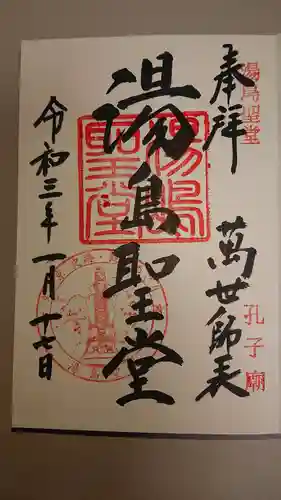 湯島聖堂
孔子廟
奉拝
萬世師表
湯島聖堂
令和三年一月十七日
湯島聖堂